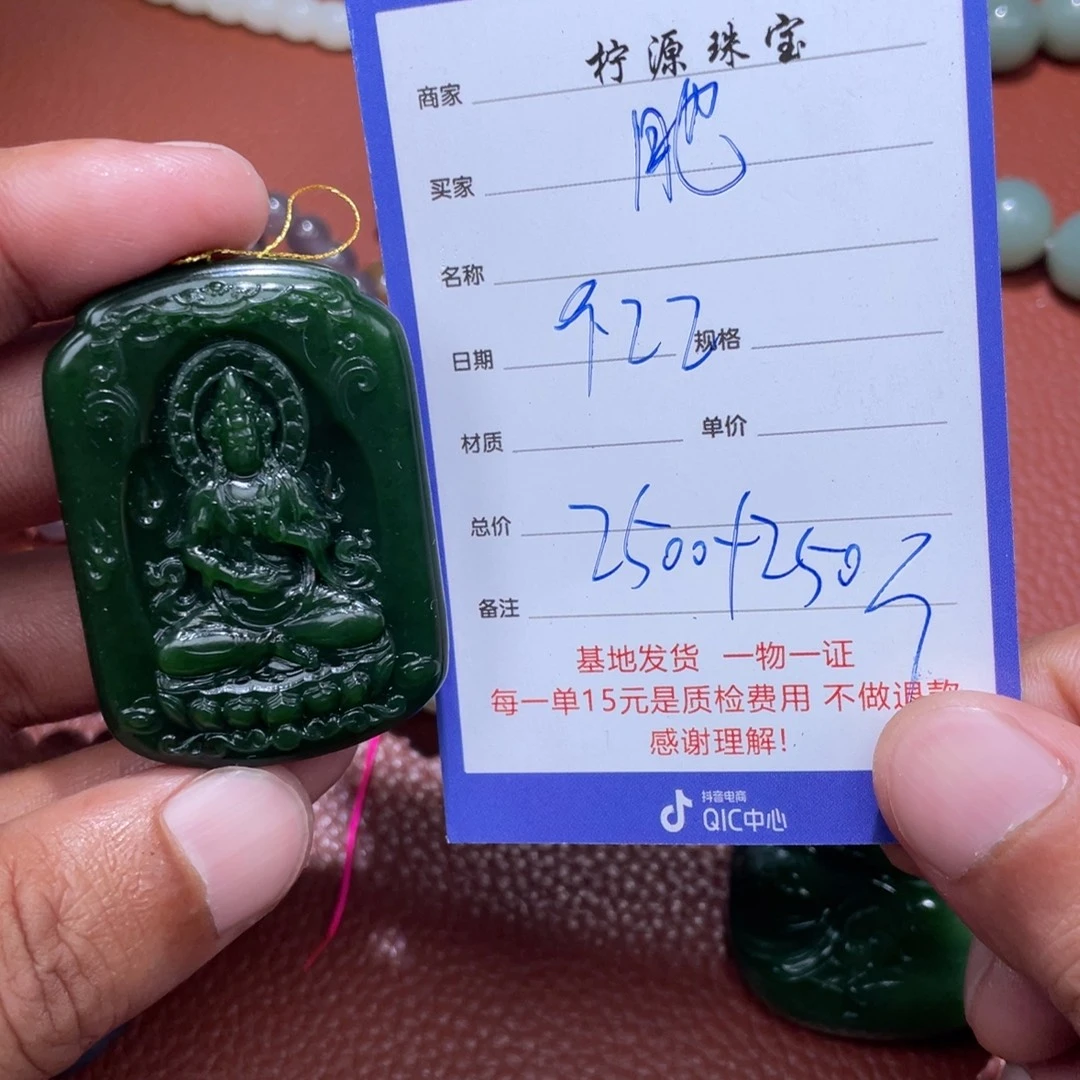 柠源珠宝
商家
买家
名称
日期 9.22 规格
材质 单价
总价 2500+250
备注
基地发货 一物一证
每一单15元是质检费用 不做退款
感谢理解!
抖音电商
QIC中心